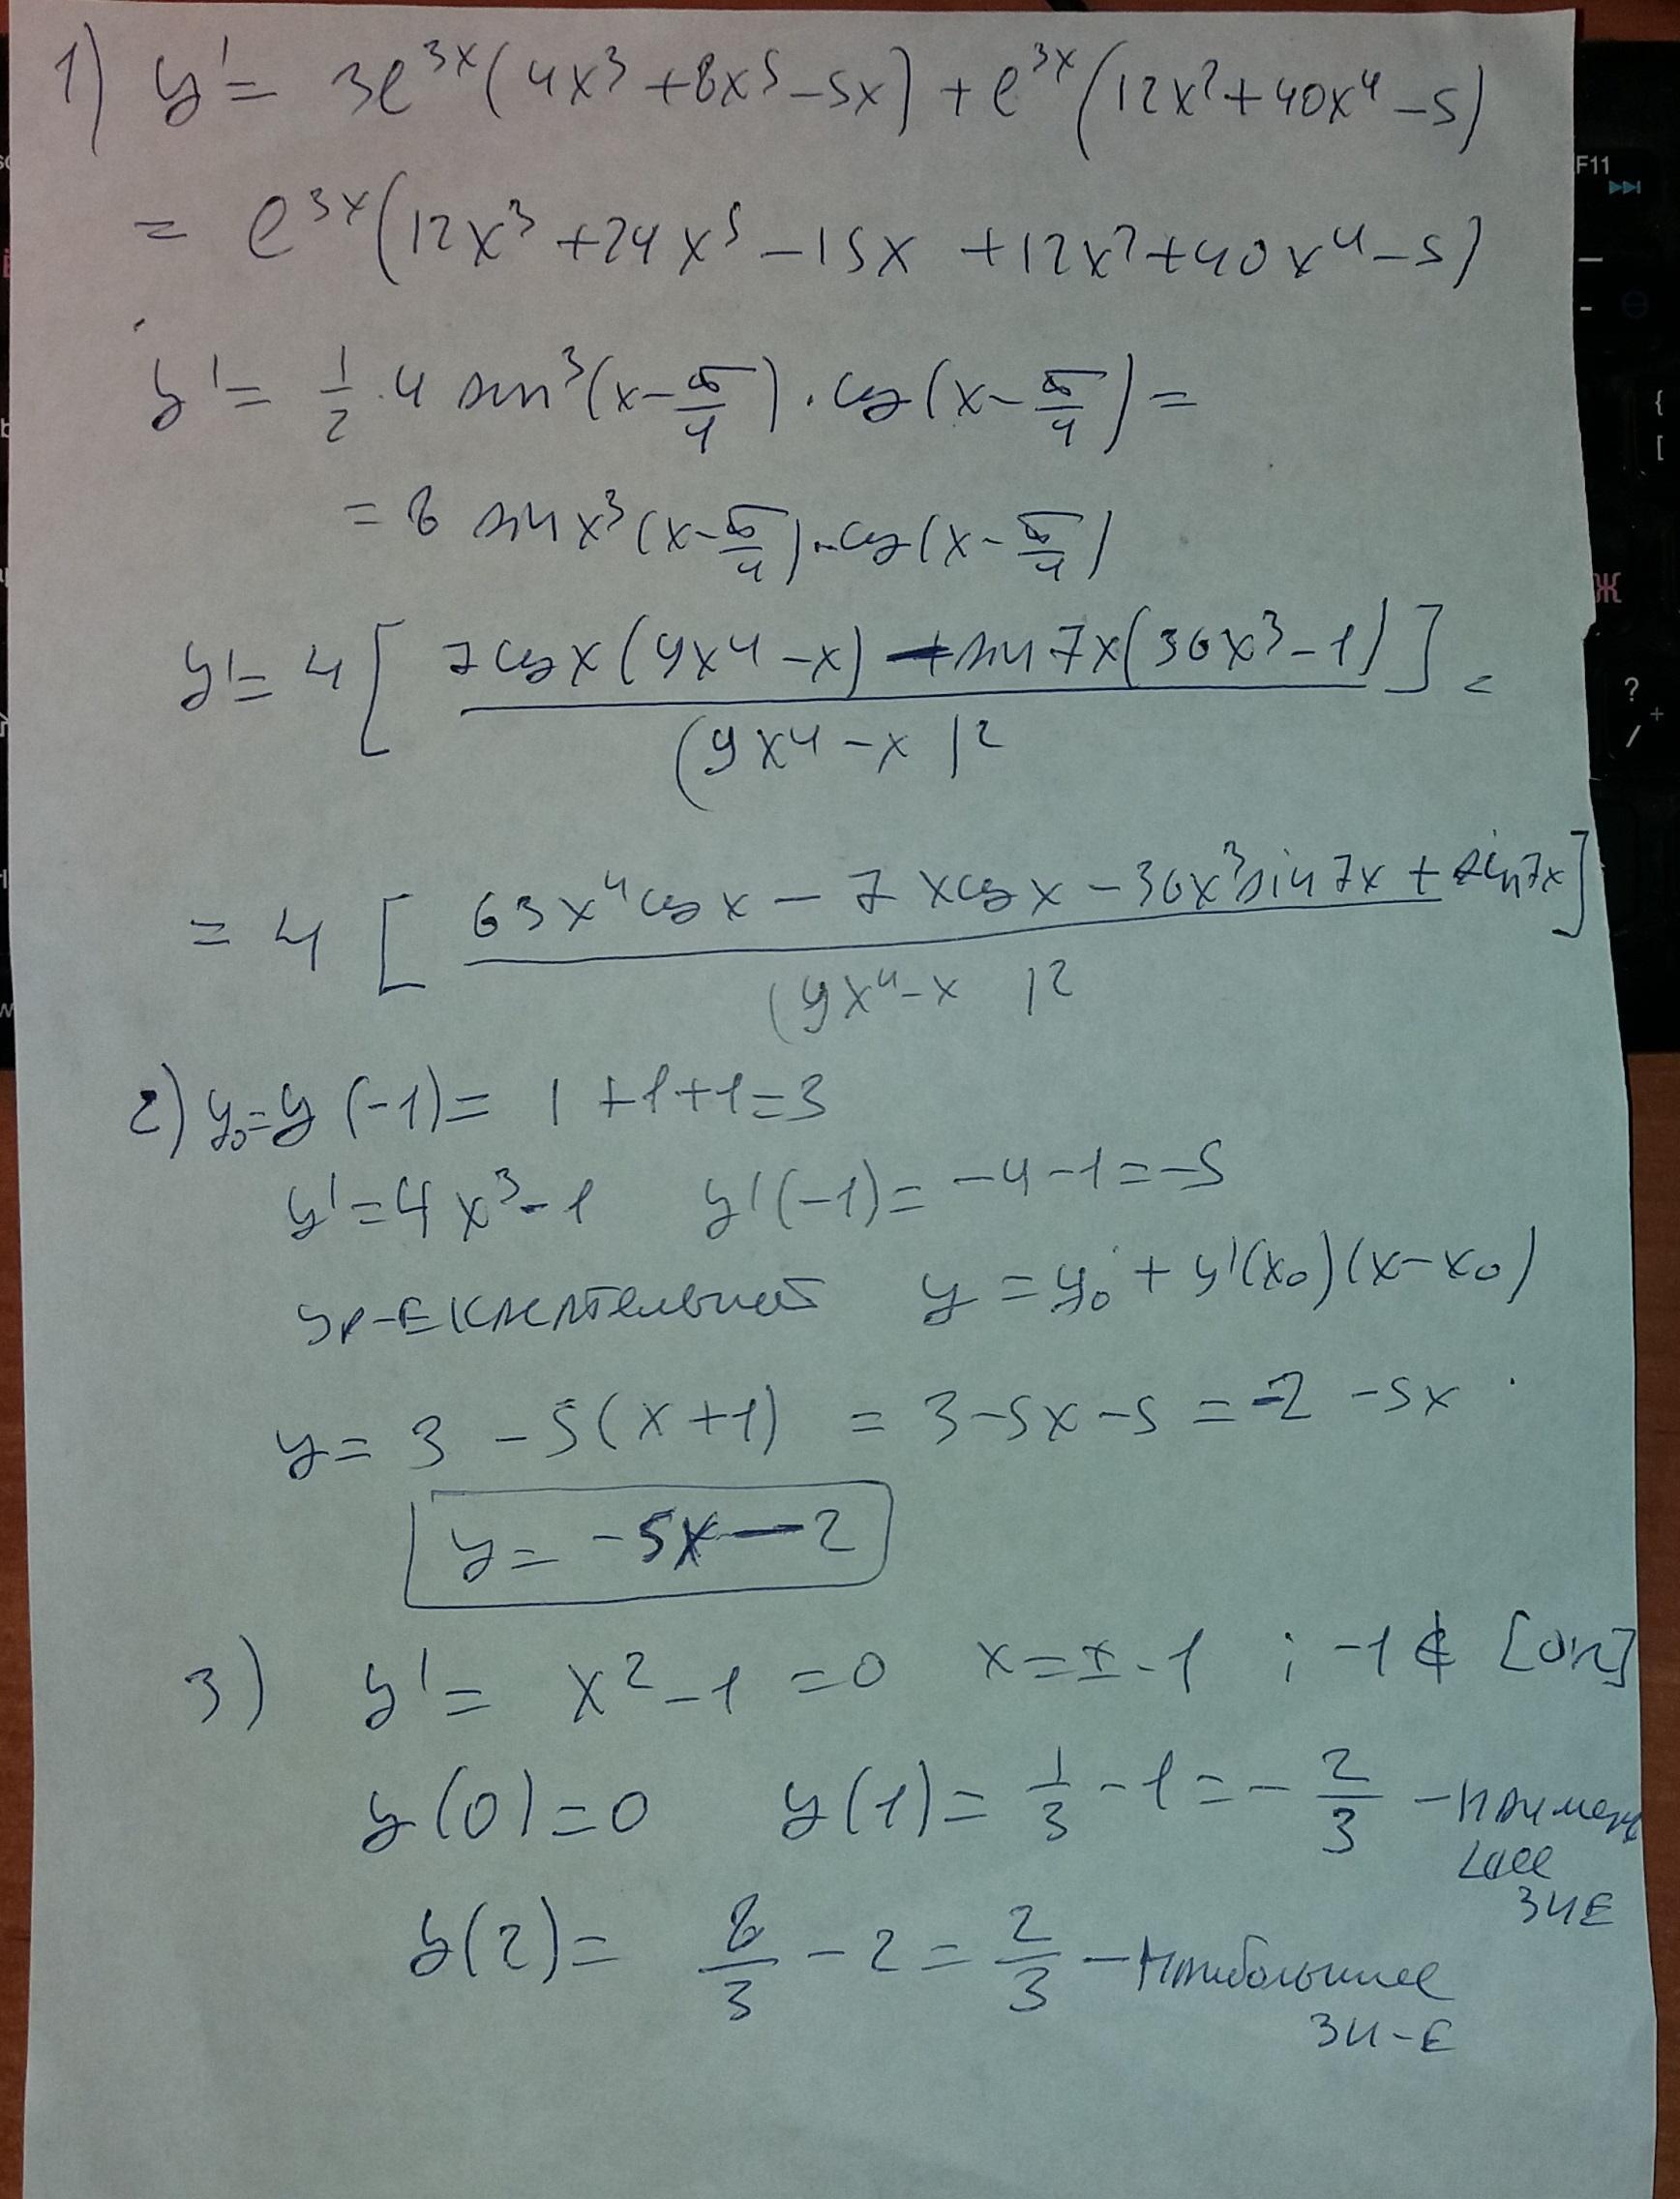 1) y' = 3e^{3x}(4x³+8x⁵-5x)+e^{3x}(12x²+40x⁴-5)
= e^{3x}(12x³+24x⁵-15x+12x²+40x⁴-5)
y' = 1/2 · 4 sin³(x-π/4) · cos(x-π/4) =
= 8 sin x³(x-π/4) · cos(x-π/4)
y' = 4[(7cos x(9x⁴-x) - sin 7x(36x³-1))/(9x⁴-x)²] =
= 4[(63x⁴cos x - 7xcos x - 36x³sin 7x + sin 7x)/(9x⁴-x)²]
2) y₀=y(-1)= 1+1+1=3
y'=4x³-1 y'(-1)= -4-1=-5
ур-е касательной y = y₀ + y'(x₀)(x-x₀)
y= 3 - 5(x+1) = 3-5x-5 = -2 -5x
y= -5x-2
3) y' = x²-1 =0 x=±1 ; -1 ∉ [0;2]
y(0)=0 y(1)= 1/3 -1 = - 2/3 - наимень
шее
зн Е
y(2)= 8/3 - 2 = 2/3 - наибольшее
зн-е
F11
{
[
Ж
?
/
+